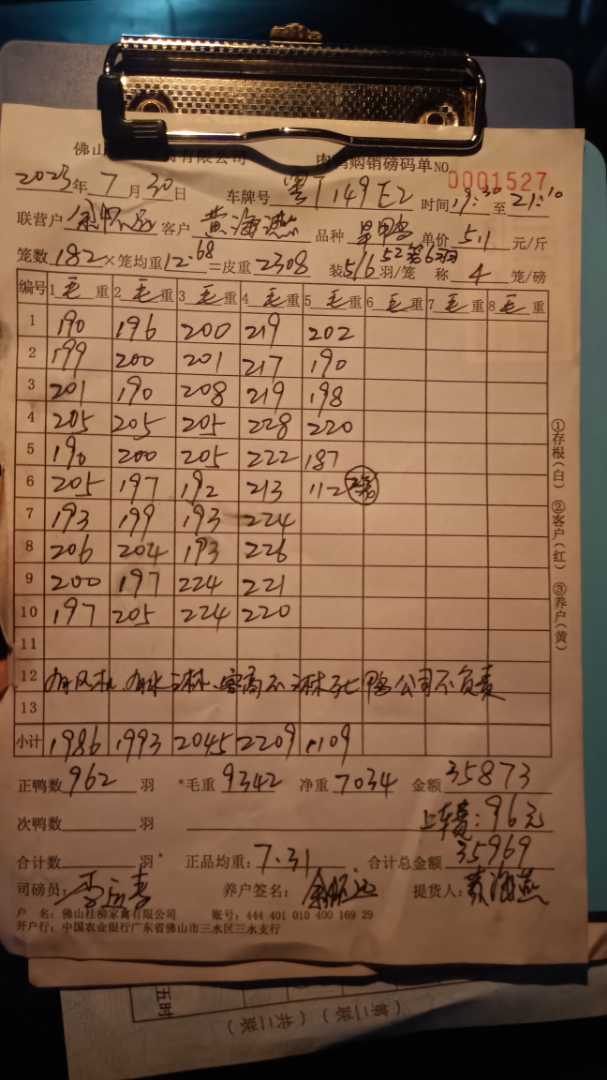 佛山 有限公司 肉鸭购销磅码单 NO 0001527
2023年 7月 30日 车牌号 粤T149E2 时间 19:30 至 21:10
联营户 客户 黄海燕 品种 单价 5.1 元/斤
笼数 182 ×笼均重 12.68 =皮重 2308 装 5/6 羽/笼 称 4 笼/磅
编号 1 毛 重 2 毛 重 3 毛 重 4 毛 重 5 毛 重 6 毛 重 7 毛 重 8 毛 重
1 190 196 200 219 202
2 199 200 201 217 190
3 201 190 208 219 198
4 205 205 205 228 220
5 190 200 205 222 187
6 205 197 192 213 112
7 193 199 193 224
8 206 204 193 226
9 200 197 224 221
10 197 205 224 220
11
12 鸭公司不负责
13
小计 1986 1993 2045 2209 1109
正鸭数 962 羽 *毛重 9342 净重 7034 金额 35873
次鸭数 羽 上车费:96元
合计数 羽 正品均重: 7.31 合计总金额 35969
司磅员: 养户签名: 提货人: 黄海燕
户 名: 佛山桂柳家禽有限公司 账号: 444 401 010 400 169 29
开户行: 中国农业银行广东省佛山市三水区三水支行
①存根(白) ②客户(红) ③养户(黄)
五时
(共二联) (第二联)